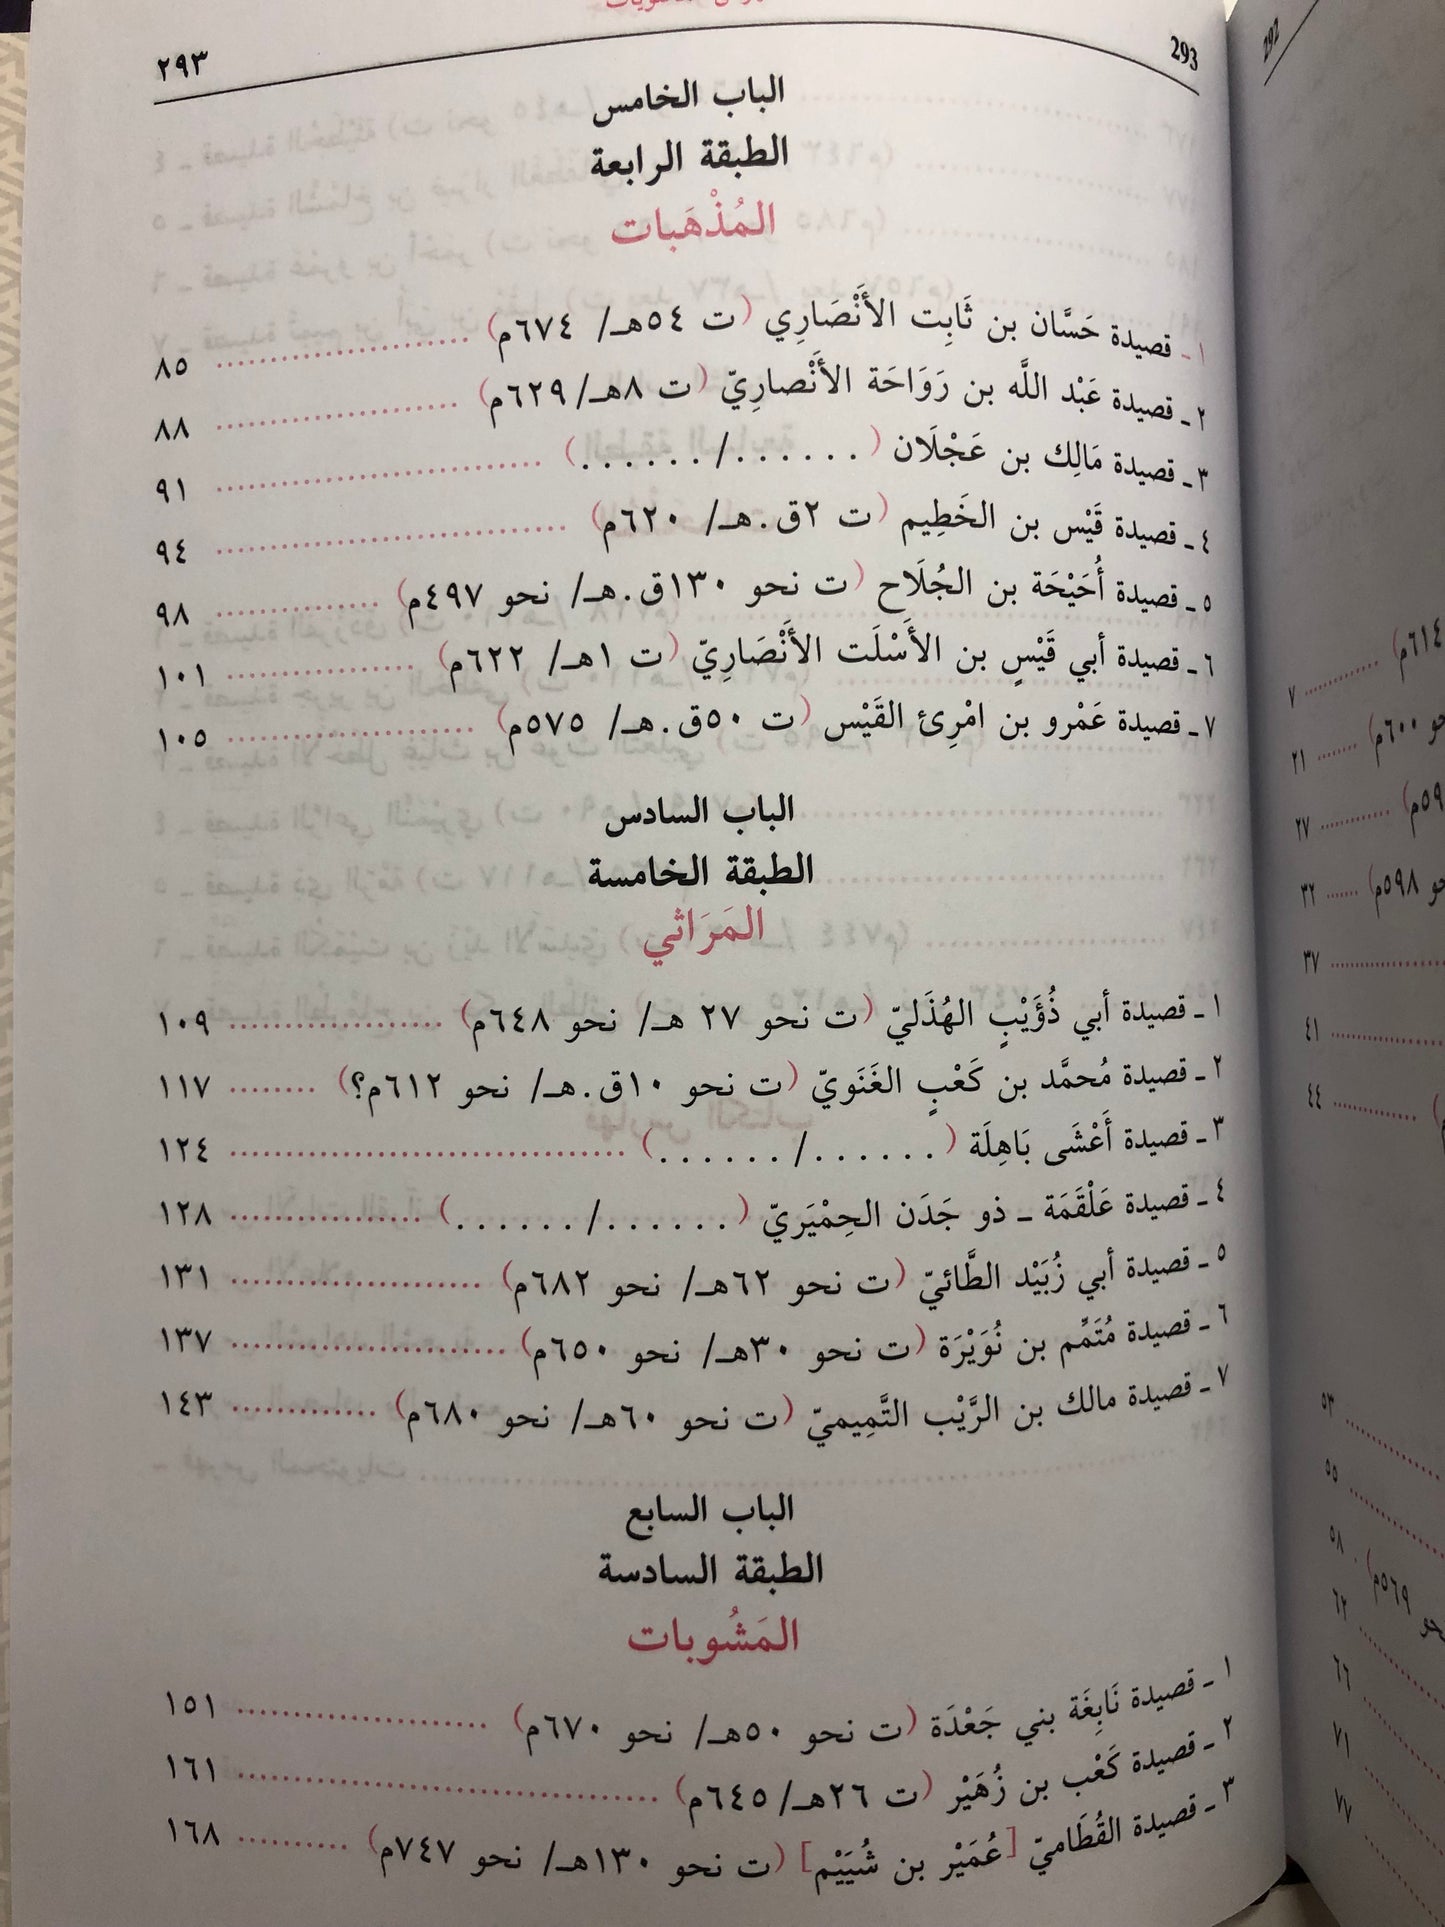 293 ٢٩٣
الباب الخامس
الطبقة الرابعة
المُذْهَبات
١ - قصيدة حَسَّان بن ثَابِت الأَنْصَارِي (ت ٥٤هـ/ ٦٧٤م) ........................ ٨٥
٢ - قصيدة عَبْد اللَّه بن رَوَاحَة الأَنْصارِيّ (ت ٨هـ/٦٢٩م) ...................... ٨٨
٣ - قصيدة مَالِك بن عَجْلَان (....../......) ............................. ٩١
٤ - قصيدة قَيْس بن الخَطِيم (ت ٢ق.هـ/ ٦٢٠م) ............................... ٩٤
٥ - قصيدة أُحَيْحَة بن الجُلَاح (ت نحو ١٣٠ق.هـ/ نحو ٤٩٧م) ............... ٩٨
٦ - قصيدة أبي قَيْسٍ بن الأَسْلَت الأَنْصَارِيّ (ت ١هـ/ ٦٢٢م) ................. ١٠١
٧ - قصيدة عَمْرو بن امْرِئ القَيْس (ت ٥٠ق.هـ/ ٥٧٥م) ...................... ١٠٥
الباب السادس
الطبقة الخامسة
المَرَاثي
١ - قصيدة أبي ذُؤَيْبٍ الهُذَليّ (ت نحو ٢٧ هـ/ نحو ٦٤٨م) .................... ١٠٩
٢ - قصيدة مُحمَّد بن كَعْبٍ الغَنَويّ (ت نحو ١٠ق.هـ/ نحو ٦١٢م؟) ........ ١١٧
٣ - قصيدة أَعْشَى بَاهِلَة (....../......) ..................................... ١٢٤
٤ - قصيدة عَلْقَمَة - ذو جَدَن الحِمْيَريّ (....../......) .................. ١٢٨
٥ - قصيدة أبي زُبَيْد الطَّائيّ (ت نحو ٦٢هـ/ نحو ٦٨٢م) ....................... ١٣١
٦ - قصيدة مُتَمِّم بن نُوَيْرَة (ت نحو ٣٠هـ/ نحو ٦٥٠م) ......................... ١٣٧
٧ - قصيدة مالك بن الرَّيْب التَّمِيميّ (ت نحو ٦٠هـ/ نحو ٦٨٠م) ............. ١٤٣
الباب السابع
الطبقة السادسة
المَشُوبات
١ - قصيدة نَابِغَة بني جَعْدَة (ت نحو ٥٠هـ/ نحو ٦٧٠م) ....................... ١٥١
٢ - قصيدة كَعْب بن زُهَيْر (ت ٢٦هـ/٦٤٥م) ...................................... ١٦١
٣ - قصيدة القُطَاميّ [عُمَيْر بن شُيَيْم] (ت نحو ١٣٠هـ/ نحو ٧٤٧م) .......... ١٦٨
292
٦١٤م) ........... ٧
نحو ٦٠٠م) ...... ٢١
........... ٢٧
نحو ٥٩٨م) ...... ٣٢
................ ٣٧
................ ٤١
............. ٤٤
٥٣
٥٥
٥٨
نحو ٥٦٩م)
٦٢
٦٦
٧١
٧٧